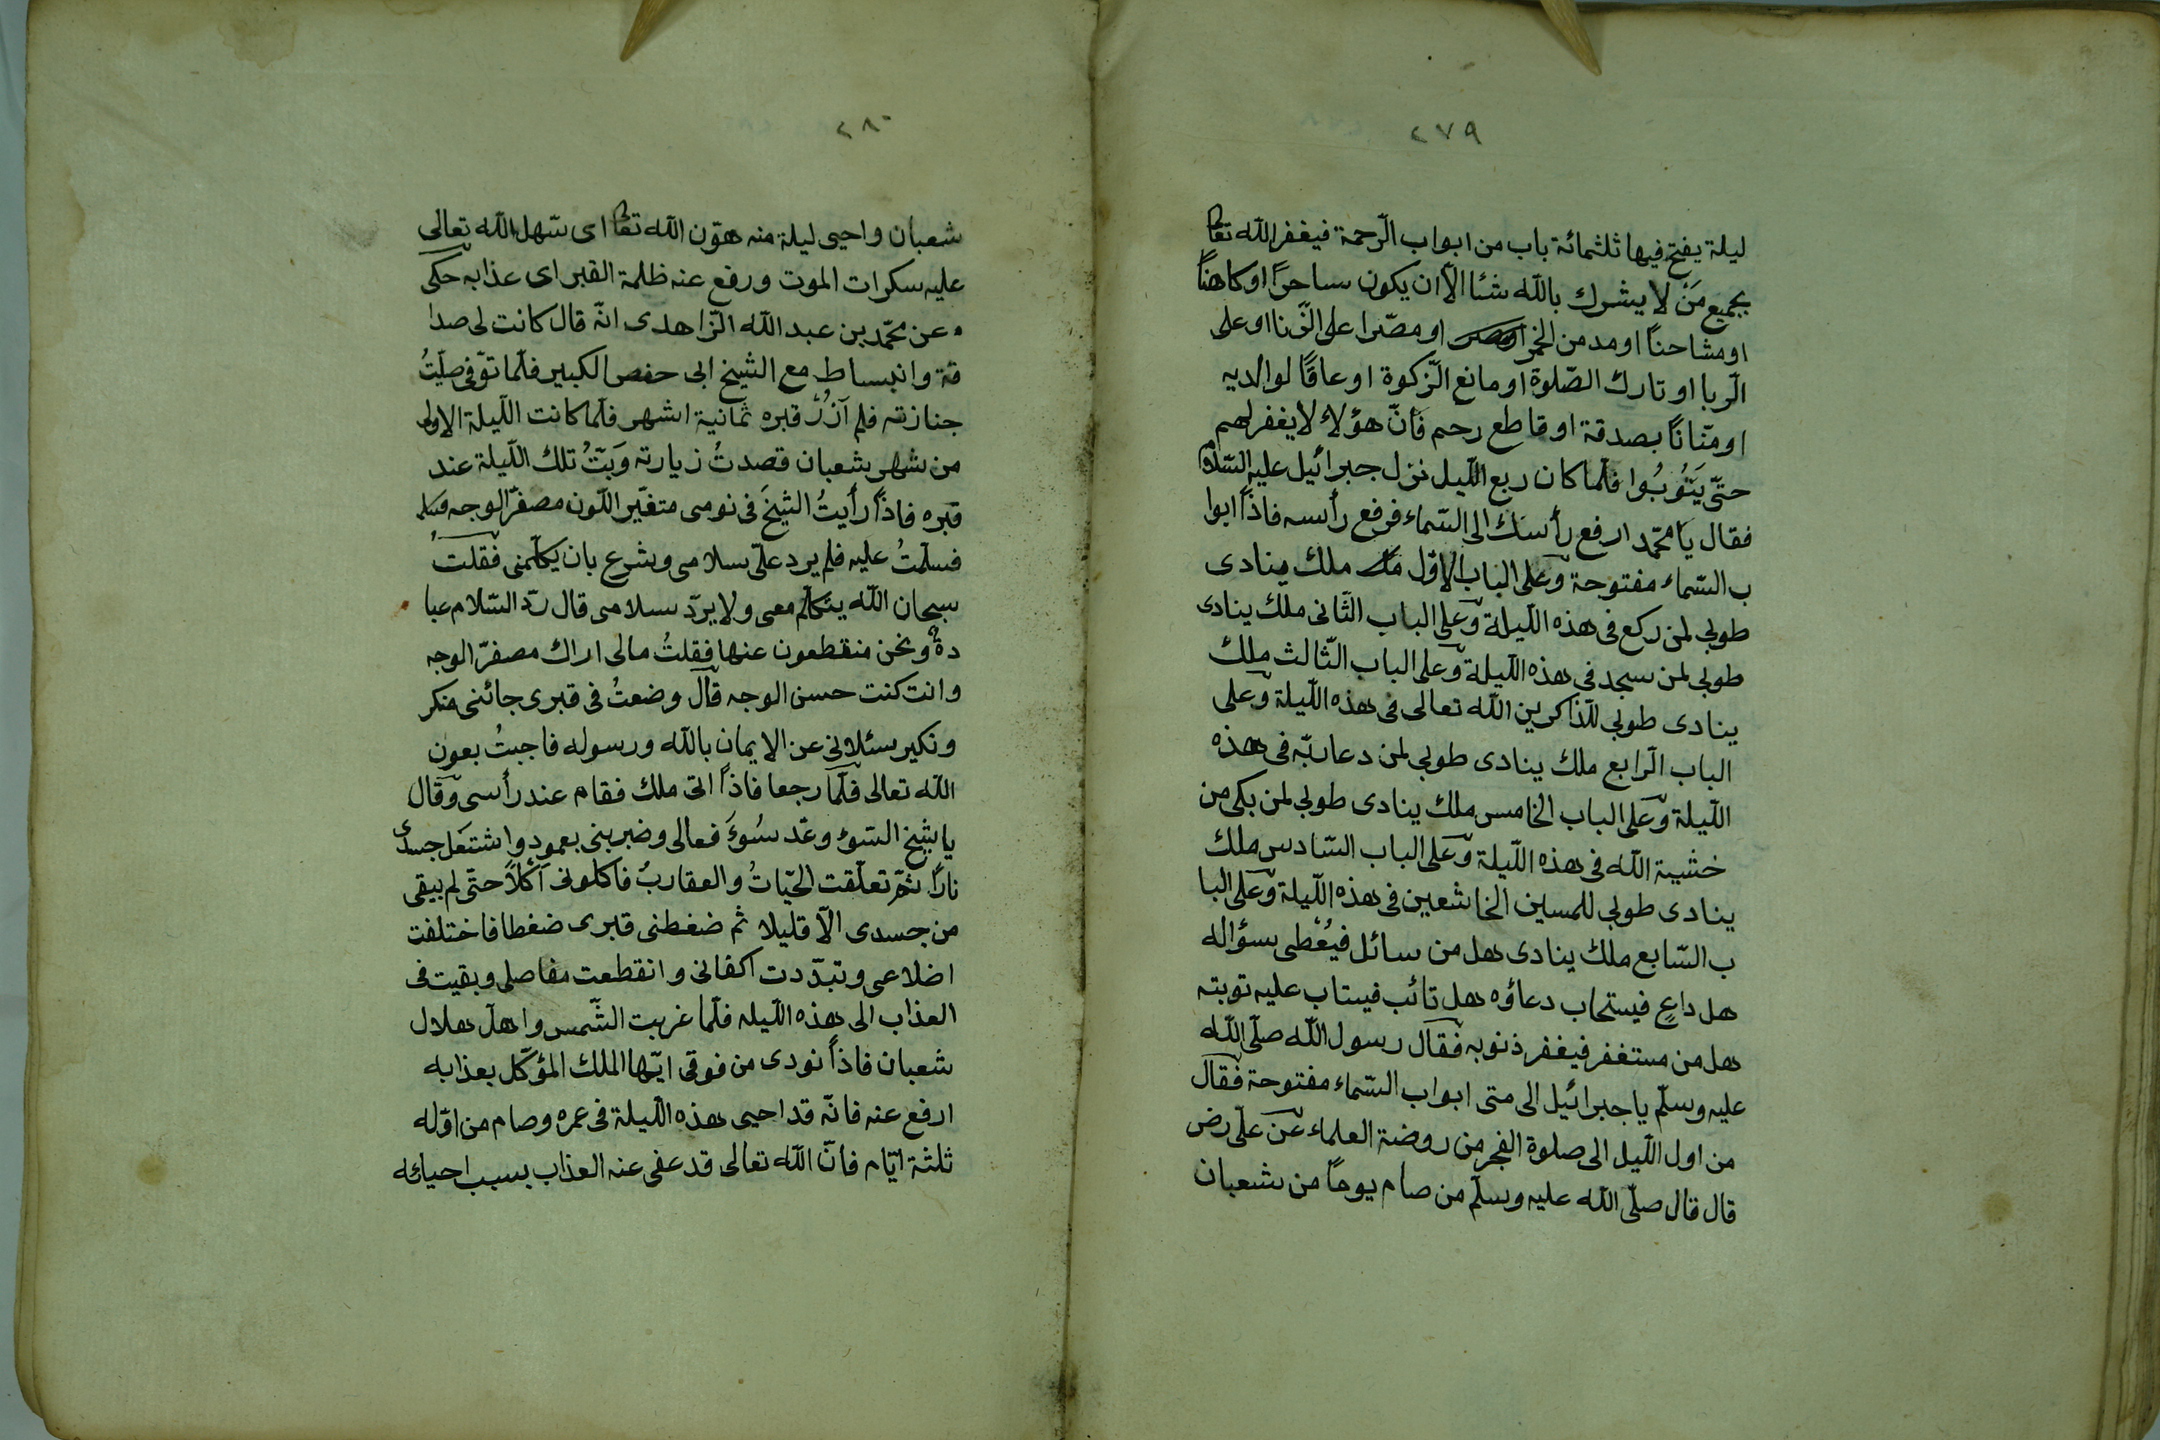 ٢٧٩
ليلة يفتح فيها ثلثمائة باب من ابواب الرّحمة فيغفر الله تعا
بجميع مَنْ لا يشرك بالله شئا الاّ ان يكون ساحرًا او كاهنًا
او مشاحنًا او مدمن الخمر او مصّرا على الزّنا او على
الرّبا او تارك الصّلوة او مانع الزّكوة او عاقًا لوالديه
او منّانًا بصدقة او قاطع رحم فانّ هؤلاء لا يغفر لهم
حتّى يَتُوبُوا فلمّا كان ربع اللّيل نزل جبرائيل عليه السّلام
فقال يا محمّد ارفع رأسك الى السّماء فرفع رأسه فاذًا ابوا
ب السّماء مفتوحة وعلى الباب الاوّل ملك ينادى
طوبى لمن ركع فى هذه اللّيلة وعلى الباب الثّانى ملك ينادى
طوبى لمن سجد فى هذه اللّيلة وعلى الباب الثّالث ملك
ينادى طوبى للذّاكرين الله تعالى فى هذه اللّيلة وعلى
الباب الرّابع ملك ينادى طوبى لمن دعا ربّه فى هذه
اللّيلة وعلى الباب الخامس ملك ينادى طوبى لمن بكى من
خشية الله فى هذه اللّيلة وعلى الباب السّادس ملك
ينادى طوبى للمسين الخاشعين فى هذه اللّيلة وعلى البا
ب السّابع ملك ينادى هل من سائل فيُعْطى سؤاله
هل داعٍ فيستجاب دعاؤه هل تائب فيستاب عليه توبته
هل من مستغفر فيغفر ذنوبه فقال رسول الله صلّى الله
عليه وسلّم يا جبرائيل الى متى ابواب السّماء مفتوحة فقال
من اول اللّيل الى صلوة الفجر من روضة العلماء عن علىّ رض
قال قال صلّى الله عليه وسلّم من صام يومًا من شعبان
٢٨٠
شعبان واحيى ليلة منه هوّن الله تعا اى سهل الله تعالى
عليه سكرات الموت ورفع عنه ظلمة القبر اى عذابه حكى
عن محمّد بن عبد الله الزّاهدى انّه قال كانت لى صدا
قة وانبساط مع الشيخ ابى حفص الكبير فلمّا توّفى صلّيتُ
جنازته فلم آزُرْ قبره ثمانية اشهر فلمّا كانت اللّيلة الاولى
من شهر شعبان قصدتُ زيارته وَبَتُّ تلك اللّيلة عند
قبره فاذًا رأيتُ الشّيخَ فى نومى متغيّر اللّون مصفرّ الوجه
فسلّمتُ عليه فلم يرد علىّ سلامى وشرع بان يكلّمنى فقلتُ
سبحان الله يتكلّم معى ولا يردّ سلامى قال ردّ السّلام عبا
دةٌ ونحن منقطعون عنها فقلتُ مالى اراك مصفرّ الوجه
وانت كنت حسن الوجه قال وضعتُ فى قبرى جائنى منكر
ونكير سئلانى عن الايمان بالله ورسوله فاجبتُ بعون
الله تعالى فلمّا رجعا فاذًا اتى ملك فقام عند رأسى وقال
يا شيخ السّوء وعّد سُوءَ فعالى وضربنى بعمود واشتعل جسدى
نارًا ثمّ تعلّقت الحيّاتُ والعقاربُ فاكلونى آكْلاً حتّى لم يبقى
من جسدى الاّ قليلا ثم ضغطنى قبرى ضغطا فاختلفت
اضلاعى وتبدّدت اكفانى وانقطعت مفاصلى وبقيت فى
العذاب الى هذه اللّيله فلمّا غربت الشّمس واهلّ هلال
شعبان فاذًا نودى من فوقى ايّها الملك المؤكّل بعذابه
ارفع عنه فانّه قد احيى هذه اللّيلة فى عمره وصام من اوّله
ثلثة ايّام فانّ الله تعالى قد عفى عنه العذاب بسبب احيائه